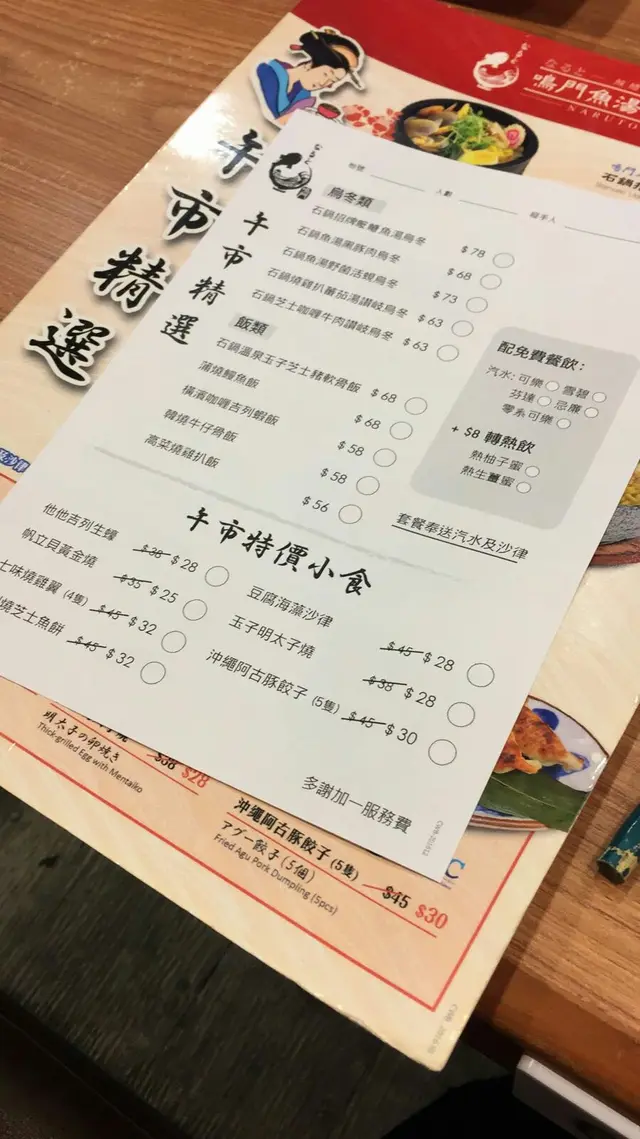 なると
鳴門魚湯
NARUTO
午市精選
なると
枱號
人數
經手人
午市精選
烏冬類
石鍋招牌蜆魚湯烏冬 $78
石鍋魚湯黑豚肉烏冬 $68
石鍋魚湯野菌活蜆烏冬 $73
石鍋燒雞扒蕃茄湯讃岐烏冬 $63
石鍋芝士咖喱牛肉讃岐烏冬 $63
飯類
石鍋溫泉玉子芝士豬軟骨飯 $68
蒲燒鰻魚飯 $68
橫濱咖喱吉列蝦飯 $58
韓燒牛仔骨飯 $58
高菜燒雞扒飯 $56
配免費餐飲:
汽水: 可樂 雪碧
芬達 忌廉
零系可樂
+ $8 轉熱飲
熱柚子蜜
熱生薑蜜
套餐奉送汽水及沙律
午市特價小食
他他吉列生蠔 $38 $28
帆立貝黃金燒 $35 $25
七味燒雞翼 (4隻) $45 $32
燒芝士魚餅 $45 $32
豆腐海藻沙律 $45 $28
玉子明太子燒 $38 $28
沖繩阿古豚餃子 (5隻) $45 $30
多謝加一服務費
明太子の卵焼き $38 $28
Thick-grilled Egg with Mentaiko
沖繩阿古豚餃子 (5隻)
アグー餃子 (5個) $45 $30
Fried Agu Pork Dumpling (5pcs)